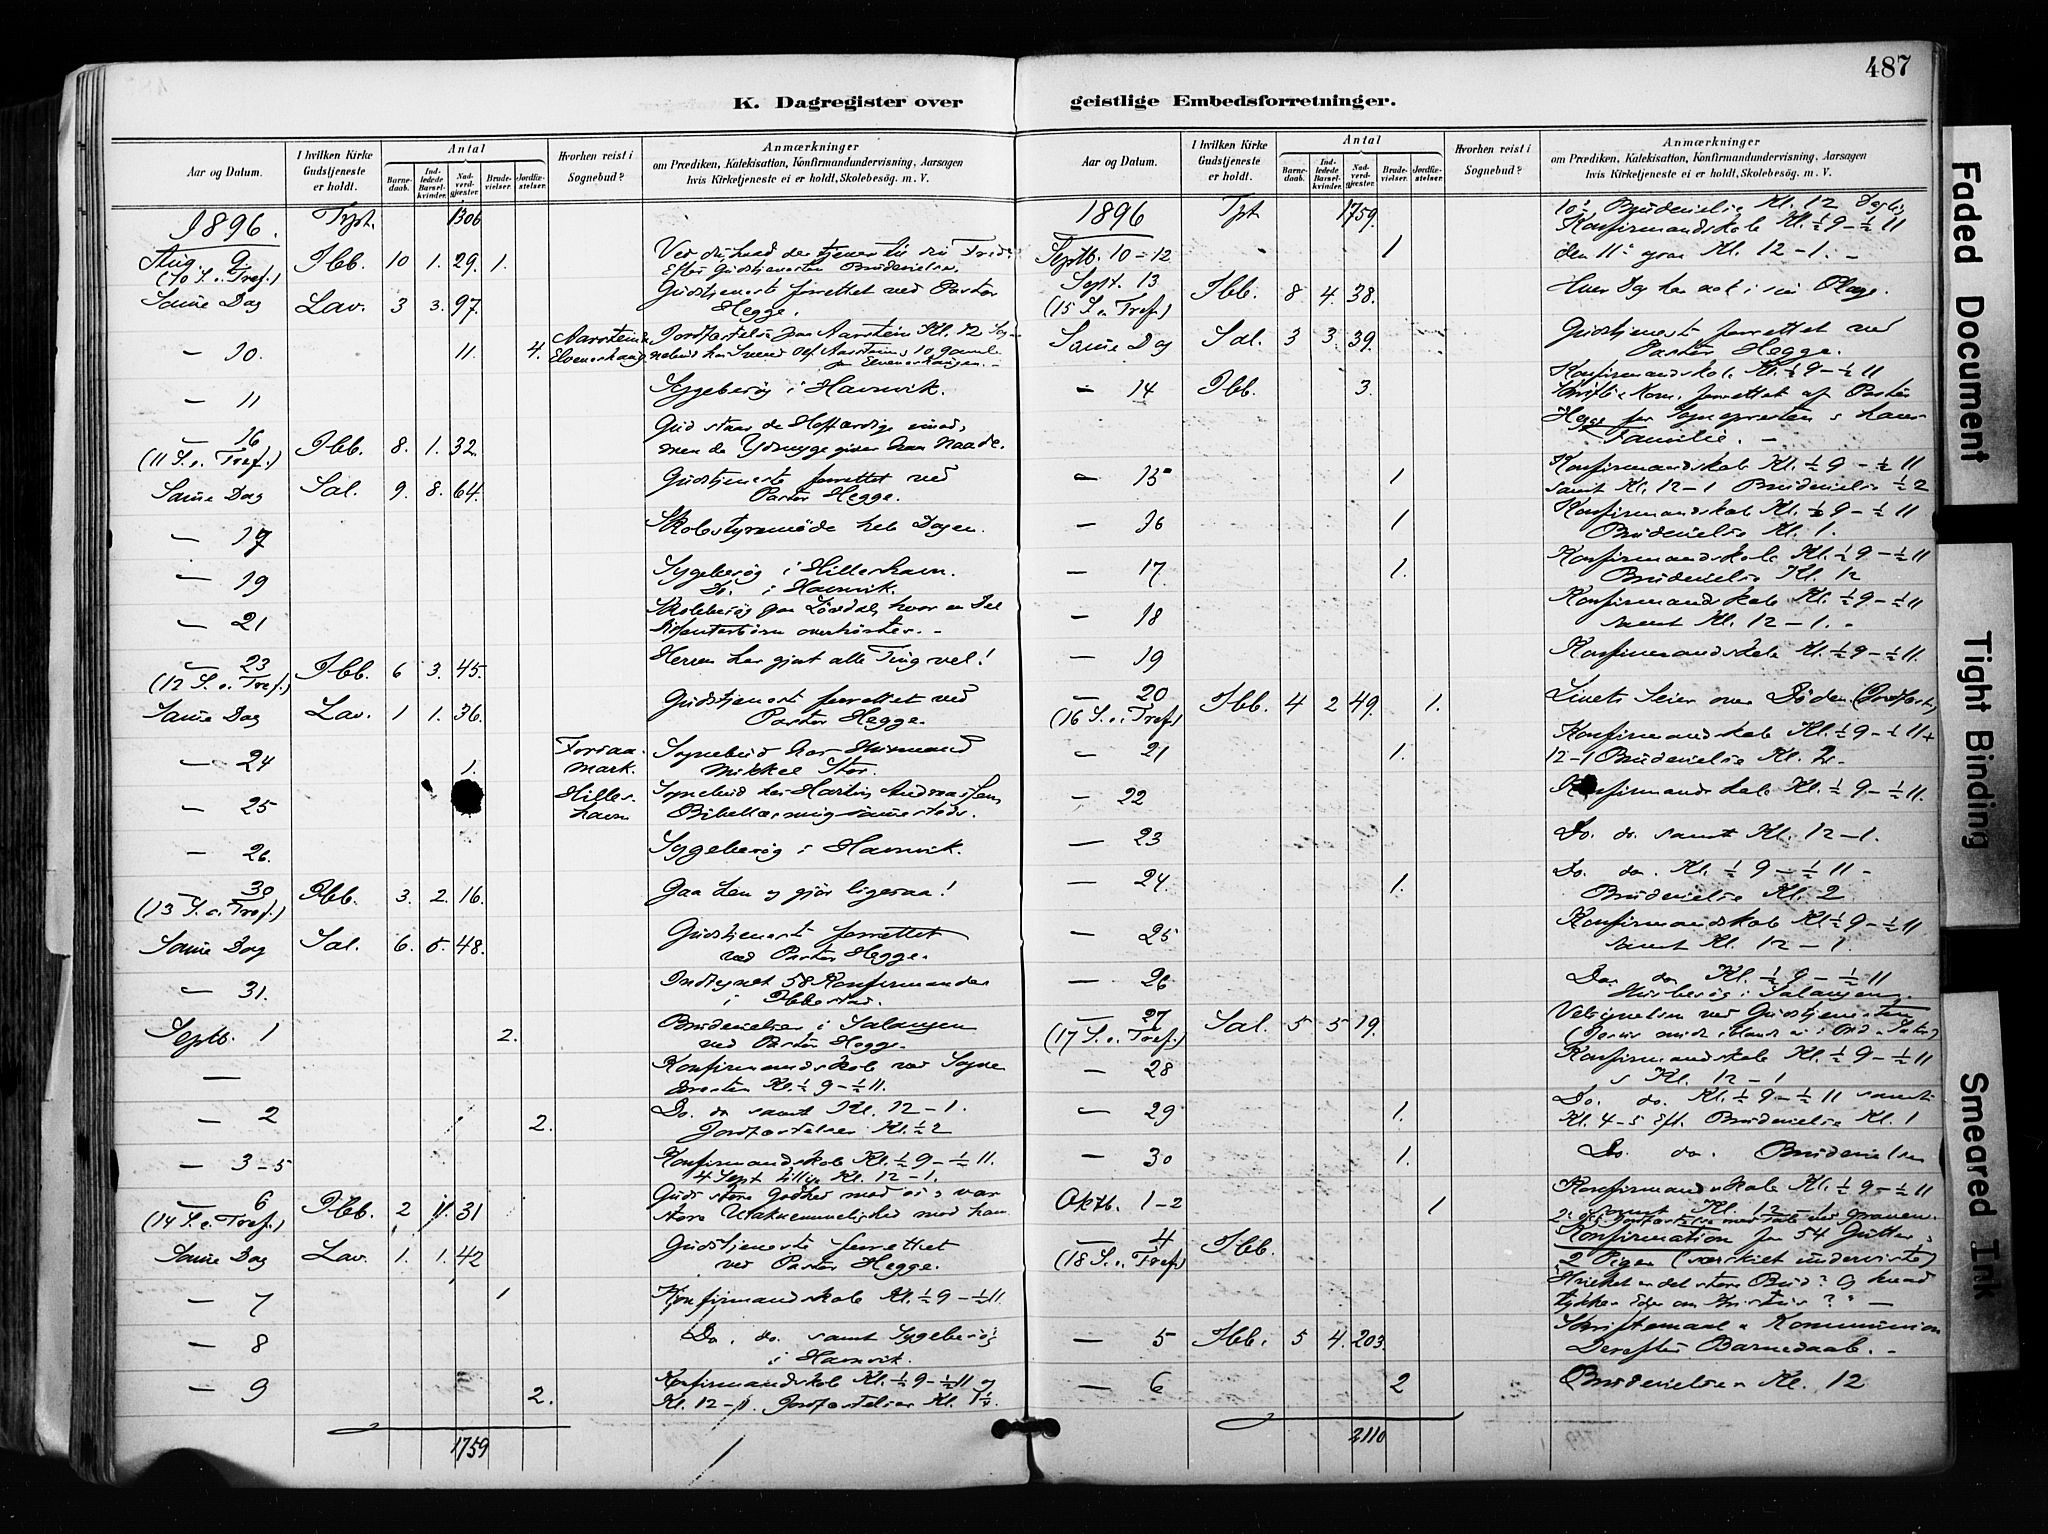 487
K. Dagregister over geistlige Embedsforretninger.
Aar og Datum. I hvilken Kirke Gudstjeneste er holdt. Antal Barnedaab. Indledede Barselkvinder. Nadverdgjester. Brudevielser. Jordfæstelser. Hvorhen reist i Sognebud? Anmærkninger om Prædiken, Katekisation, Konfirmandundervisning, Aarsagen hvis Kirketjeneste ei er holdt, Skolebesøg. m. V.
1896. Tpt. 1306
Aug. 9. Ibb. 10 1. 29. 1.
(10 S. e. Tref.) Efter Gudstjenesten Brudevielse.
Samme Dag Lav. 3 3. 97. Gudstjeneste forrettet ved Pastor
Hegge.
— 10. 11. 4.
— 11 Sygebesøg i Havnvik.
— 16 Ibb. 8. 1. 32. Gud staar de Hoffærdige imod,
(11 S. e. Tref.) men de Ydmyge giver han Naade.
Samme Dag Sal. 9. 8. 64. Gudstjeneste forrettet ved
Pastor Hegge.
— 17 Skolestyremøde hele Dagen.
— 19 Sygebesøg i Hilleshavn.
Do. i Havnvik.
— 21 Skolebesøg paa Løvdal, hvor en Del
Dissenterbørn overhørtes. -
— 23 Ibb. 6 3. 45. Herren har gjort alle Ting vel!
(12 S. e. Tref.)
Samme Dag Lav. 1 1. 36. Gudstjeneste forrettet ved
Pastor Hegge.
— 24 1. Forsaa- Sognebud hos
mark. Mikkel
— 25 Hilles- Sognebud hos
havn Bibellæsning sammesteds.
— 26. Sygebesøg i Havnvik.
— 30 Ibb. 3. 2. 16. Gaa hen og gjør ligesaa!
(13 S. e. Tref.)
Samme Dag Sal. 6. 5. 48. Gudstjeneste forrettet
ved Pastor Hegge.
— 31. Indtegnet 58 Konfirmander
i Ibbestad.
Septb. 1 2. Brudevielser i Salangen
ved Pastor Hegge.
— Konfirmandskole ved Sogne
præsten Kl. ½ 9 – ½ 11.
— 2 2. Do. do samt Kl. 12 – 1.
Jordfæstelser Kl. ½ 2
— 3-5 Konfirmandskole Kl. ½ 9 – ½ 11.
4 Sept. tillige Kl. 12 – 1.
— 6 Ibb. 2 1. 31 Guds store Godhed mod os; vor
(14 S. e. Tref.) store Utaknemmelighed mod ham
Samme Dag Lav. 1. 1. 42 Gudstjeneste forrettet
ved Pastor Hegge.
— 7 1 Konfirmandskole Kl. ½ 9 – ½ 11.
— 8 Do. do. samt Sygebesøg
i Havnvik.
— 9 2. Konfirmandskole Kl. ½ 9 – ½ 11 og
Kl. 12 – 1. Jordfæstelser Kl.
1759
Aar og Datum. I hvilken Kirke Gudstjeneste er holdt. Antal Barnedaab. Indledede Barselkvinder. Nadverdgjester. Brudevielser. Jordfæstelser. Hvorhen reist i Sognebud? Anmærkninger om Prædiken, Katekisation, Konfirmandundervisning, Aarsagen hvis Kirketjeneste ei er holdt, Skolebesøg. m. V.
1896 Tpt. 1759. Brudevielse Kl. 12
Konfirmandskole Kl. ½ 9 – ½ 11
Septb. 10 – 12 1 Kl. 12 – 1. -
Sept. 13 Ibb. 8 4. 38. Hver Dag har nok i sin Plage.
(15 S. e. Tref.)
Samme Dag Sal. 3 3. 39. Gudstjeneste forrettet ved
Pastor Hegge.
— 14 Ibb. 3. Konfirmandskole Kl. ½ 9 – ½ 11
forrettet af Pastor
Hegge for Sognepræsten & hans
Familie. -
— 15 1 Konfirmandskole Kl. ½ 9 – ½ 11
samt Kl. 12 – 1 Brudevielse ½ 2
— 16 1 Konfirmandskole Kl. ½ 9 – ½ 11
Brudevielse Kl. 1.
— 17. 1. Konfirmandskole Kl. ½ 9 – ½ 11
Brudevielse Kl. 12
— 18 Konfirmandskole Kl. ½ 9 – ½ 11
samt Kl. 12 – 1. -
— 19 Konfirmandskole Kl. ½ 9 – ½ 11.
— 20 Ibb. 4 2 49. 1. Livets Seier over Døden
(16 S. e. Tref.)
— 21 1. Konfirmandskole Kl. ½ 9 – ½ 11 +
12 – 1 Brudevielse Kl. 2.
— 22 Konfirmandskole Kl. ½ 9 – ½ 11.
— 23 Do. do. samt Kl. 12 – 1.
— 24. 1. Do. do. Kl. ½ 9 – ½ 11 -
Brudevielse Kl. 2
— 25 Konfirmandskole Kl ½ 9 – ½ 11
samt Kl. 12 – 1.
— 26 Do. do Kl. ½ 9 – ½ 11
Husbesøg i Salangen.
— 27 Sal. 5 5 19. ved Gudstjenesten
(17 S. e. Tref.)
— 28 Konfirmandskole Kl. ½ 9 – ½ 11
& Kl. 12 – 1
— 29 1. Do. do. Kl. ½ 9 – ½ 11 samt
Kl. 4 – 5 Eft. Brudevielse Kl. 1
— 30 1. Do. do. Brudevielse
Oktb. 1-2 1 Konfirmandskole Kl. ½ 9 – ½ 11
samt Kl. 12 – 1
— 4 Ibb. Konfirmation for 54 Gutter &
(18 S. e. Tref.) 2 Piger (særskilt undervist)
Hvilket er det store Bud? Og hvad
tykkes Eder om Kristus?" —
— 5 Ibb. 5 4. 203. Skriftemaal & Kommunion
Derefter Barnedaab. -
— 6 2 Brudevielser Kl. 12
2110
Faded Document
Tight Binding
Smeared Ink